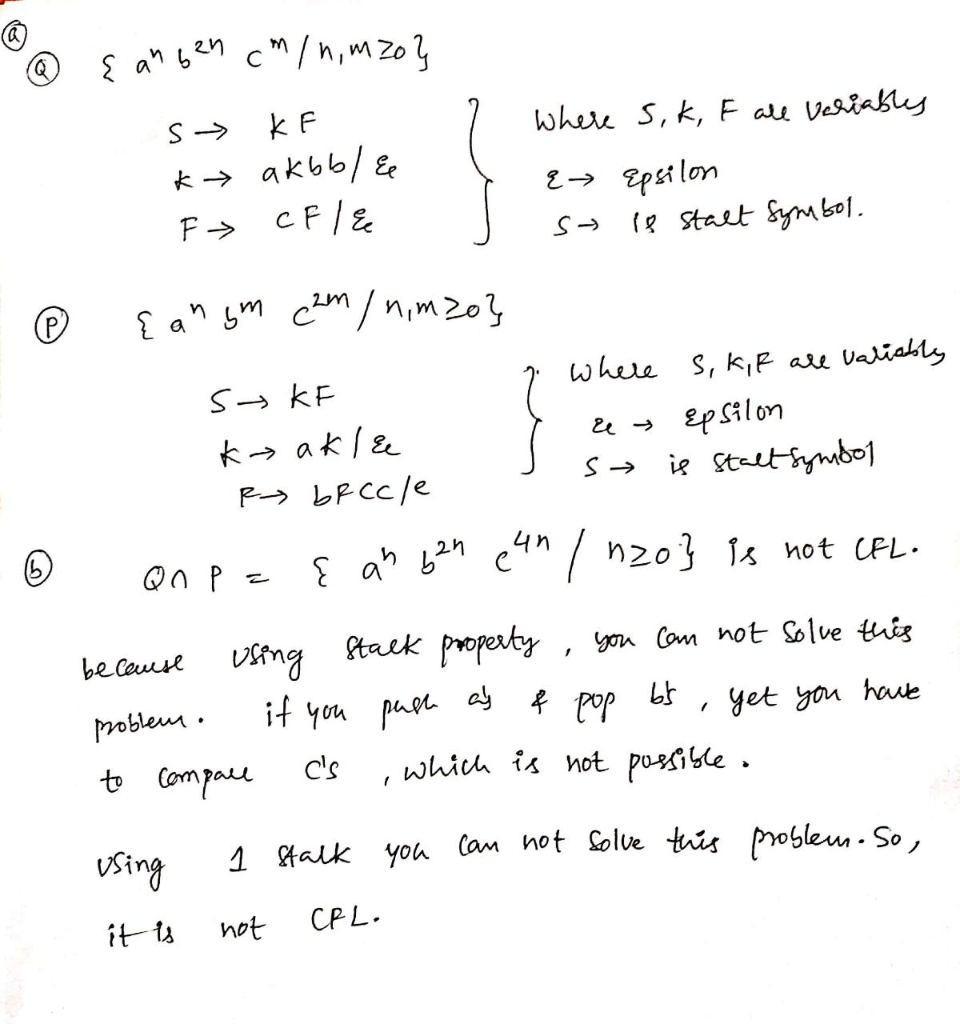 ⓐ
Ⓠ { aⁿ b²ⁿ cᵐ / n,m ≥0 }
S → KF
K → aKbb / ε
F → CF / ε
Where S, K, F are Variables
ε → Epsilon
S → is start Symbol.
Ⓟ { aⁿ bᵐ c²ᵐ / n,m ≥0 }
S → KF
K → aK / ε
F → bFCC / e
Where S, K, F are Variables
ε → Epsilon
S → is start Symbol
ⓑ Q ∩ P = { aⁿ b²ⁿ c⁴ⁿ / n≥0 } is not CFL.
because Using Stack property , you Can not Solve this
problem. if you push a's & pop b's , yet you have
to Compare C's , which is not possible .
Using 1 Stack you Can not Solve this problem. So ,
it is not CFL.